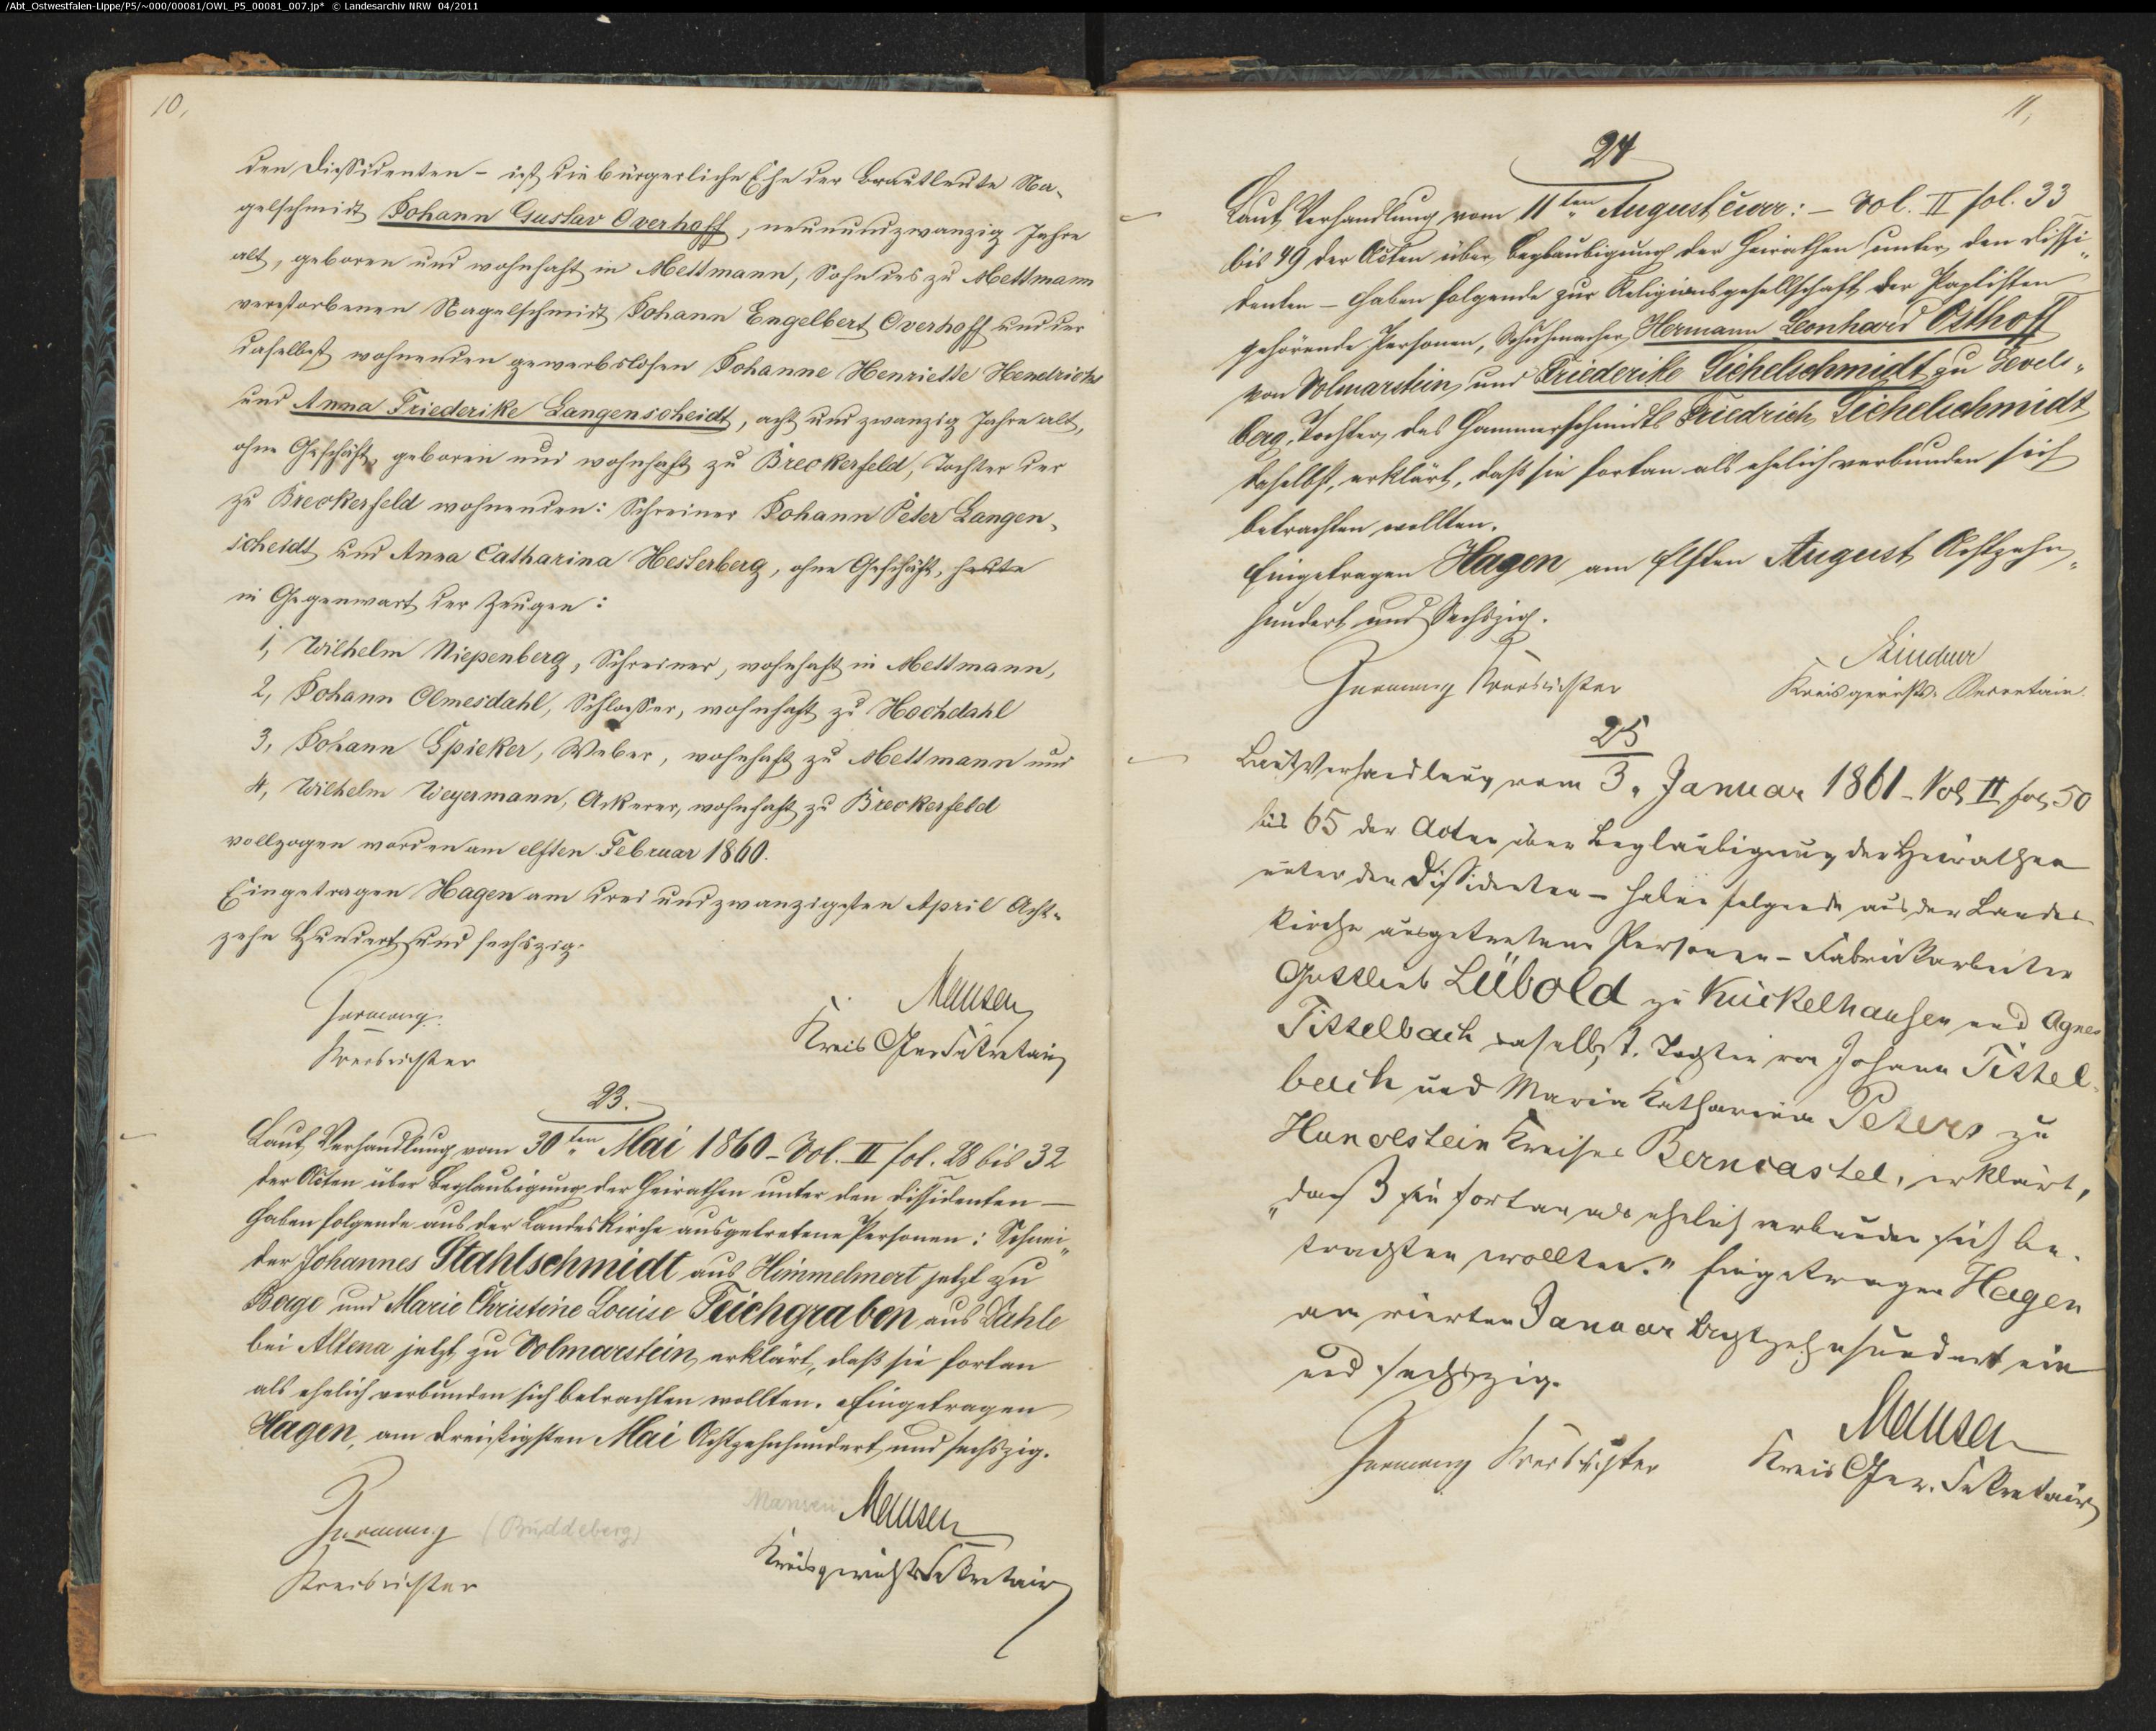 /Abt_Ostwestfalen-Lippe/P5/~000/00081/OWL_P5_00081_007.jp* © Landesarchiv NRW 04/2011
10,
den Dissidenten – ist die bürgerliche Ehe der Brautleute Na-
gelschmidt Johann Gustav Overhoff, neunundzwanzig Jahre
alt, geboren und wohnhaft in Mettmann, Sohn des zu Mettmann
verstorbenen Nagelschmidt Johann Engelbert Overhoff und der
daselbst wohnenden gewerbslosen Johanne Henriette Hendrichs
und Anna Friederike Langenscheidt, acht und zwanzig Jahre alt,
ohne Geschäft, geboren und wohnhaft zu Breckerfeld, Tochter der
zu Breckerfeld wohnenden: Schreiner Johann Peter Langen-
scheidt und Anna Catharina Hesterberg, ohne Geschäft, heute
in Gegenwart der Zeugen:
1, Wilhelm Niepenberg, Schreiner, wohnhaft in Mettmann,
2, Johann Olmesdahl, Schlosser, wohnhaft zu Hochdahl
3, Johann Spieker, Weber, wohnhaft zu Mettmann und
4, Wilhelm Weyermann, Ackerer, wohnhaft zu Breckerfeld
vollzogen worden am elften Februar 1860.
Eingetragen Hagen am drei und zwanzigsten April Acht-
zehn Hundert und sechszig.
Mansen
Kreisrichter
Kreis Ger Sekretair
23.
Laut Verhandlung vom 30ten Mai 1860 – Vol. II fol. 28 bis 32
der Acten über Beglaubigung der Heirathen unter den Dissidenten –
haben folgende aus der Landeskirche ausgetretene Personen: Schnei„
der Johannes Stahlschmidt aus Himmelmert jetzt zu
Berge und Marie Christine Louise Teichgraben aus Dahle
bei Altena jetzt zu Volmarstein, erklärt, daß sie fortan
als ehelich verbunden sich betrachten wollten. Eingetragen
Hagen, am dreißigsten Mai Achtzehnhundert und sechszig.
(Buddeberg)
Mansen Mansen
Kreisrichter
Kreisgerichts Sekretair
11,
24
Laut Verhandlung vom 11ten August curr: – Vol. II fol. 33
bis 49 der Acten über Beglaubigung der Heirathen unter den Dissi„
denten – haben folgende zur Religionsgesellschaft der Baptisten
gehörende Personen, Schuhmacher Hermann Leonhard Osthoff
von Volmarstein und Friederike Sichelschmidt zu Gevels„
berg, Tochter des Hammerschmidts Friedrich Sichelschmidt
daselbst, erklärt, daß sie fortan als ehelich verbunden sich
betrachten wollten.
Eingetragen Hagen am elften August Achtzehn„
hundert und Sechszig.
Kreisrichter
Kreisgerichts-Secretair.
25
Laut Verhandlung vom 3. Januar 1861 – Vol II fol 50
bis 65 der Acten über Beglaubigung der Heirathen
unter den Dissidenten – haben folgende aus der Landes
kirche ausgetretene Personen – Fabrikarbeiter
Gottlieb Lübold zu Kückelhausen und Agnes
Tittelbach daselbst, Tochter von Johann Tittel-
bach und Maria Katharina Peters zu
Hunolstein Kreises Berncastel, erklärt,
„daß sie fortan als ehelich verbunden sich be-
trachten wollten.“ Eingetragen Hagen
am vierten Januar Achtzehnhundert ein
und sechszig.
Kreisrichter
Mansen
Kreis Ger. Sekretair